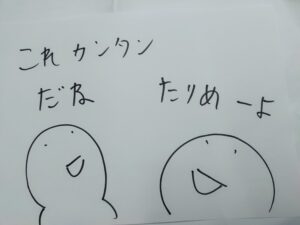 これ カンタン
だね
たりめーよ